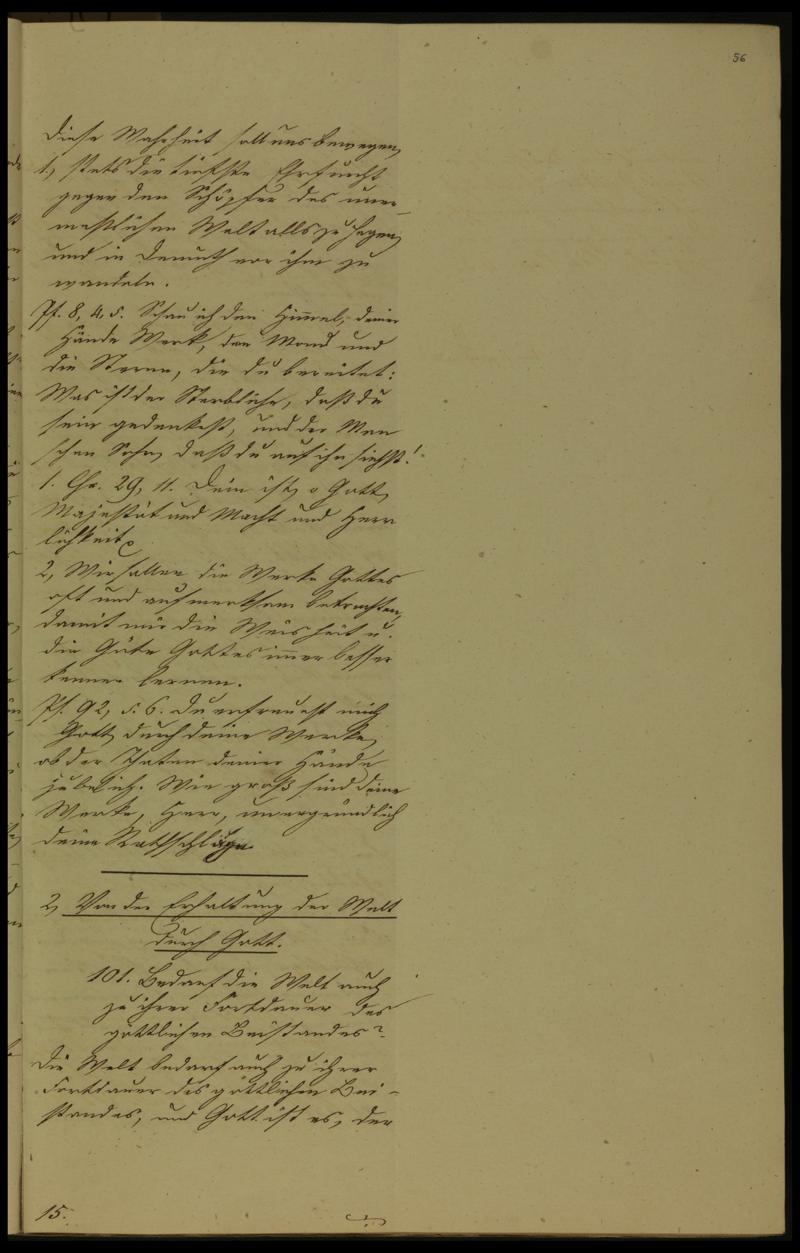 56
Diese Wahrheit soll uns bewegen,
1, stets die tiefste Ehrfurcht
gegen den Schöpfer des uner-
meßlichen Weltalls zu hegen,
und in Demuth vor ihm zu
wandeln.
Ps. 8, 4, 5. Schau ich den Himmel, deiner
Hände Werk, den Mond und
die Sterne, die du bereitet:
Was ist der Sterbliche, daß du
sein gedenkest, und der Men
schen Sohn, daß du auf ihn siehst!
1. Chr. 29, 11. Dein ist, o Gott,
Majestät und Macht und Herr
lichkeit.
2, Wir sollen die Werke Gottes
oft und aufmerksam betrachten,
damit wir die Weisheit u.
die Güte Gottes immer besser
kennen lernen.
Ps. 92, 5. 6. Du erfreuest mich
Gott, durch deine Werke,
ob der Thaten deiner Hände
juble ich. Wie groß sind deine
Werke, Herr, unergründlich
deine Rathschläge
2, Von der Erhaltung der Welt
durch Gott.
101. Bedarf die Welt auch
zu ihrer Fortdauer des
göttlichen Beistandes?
Die Welt bedarf auch zu ihrer
Fortdauer des göttlichen Bei-
standes, und Gott ist es, der
15.